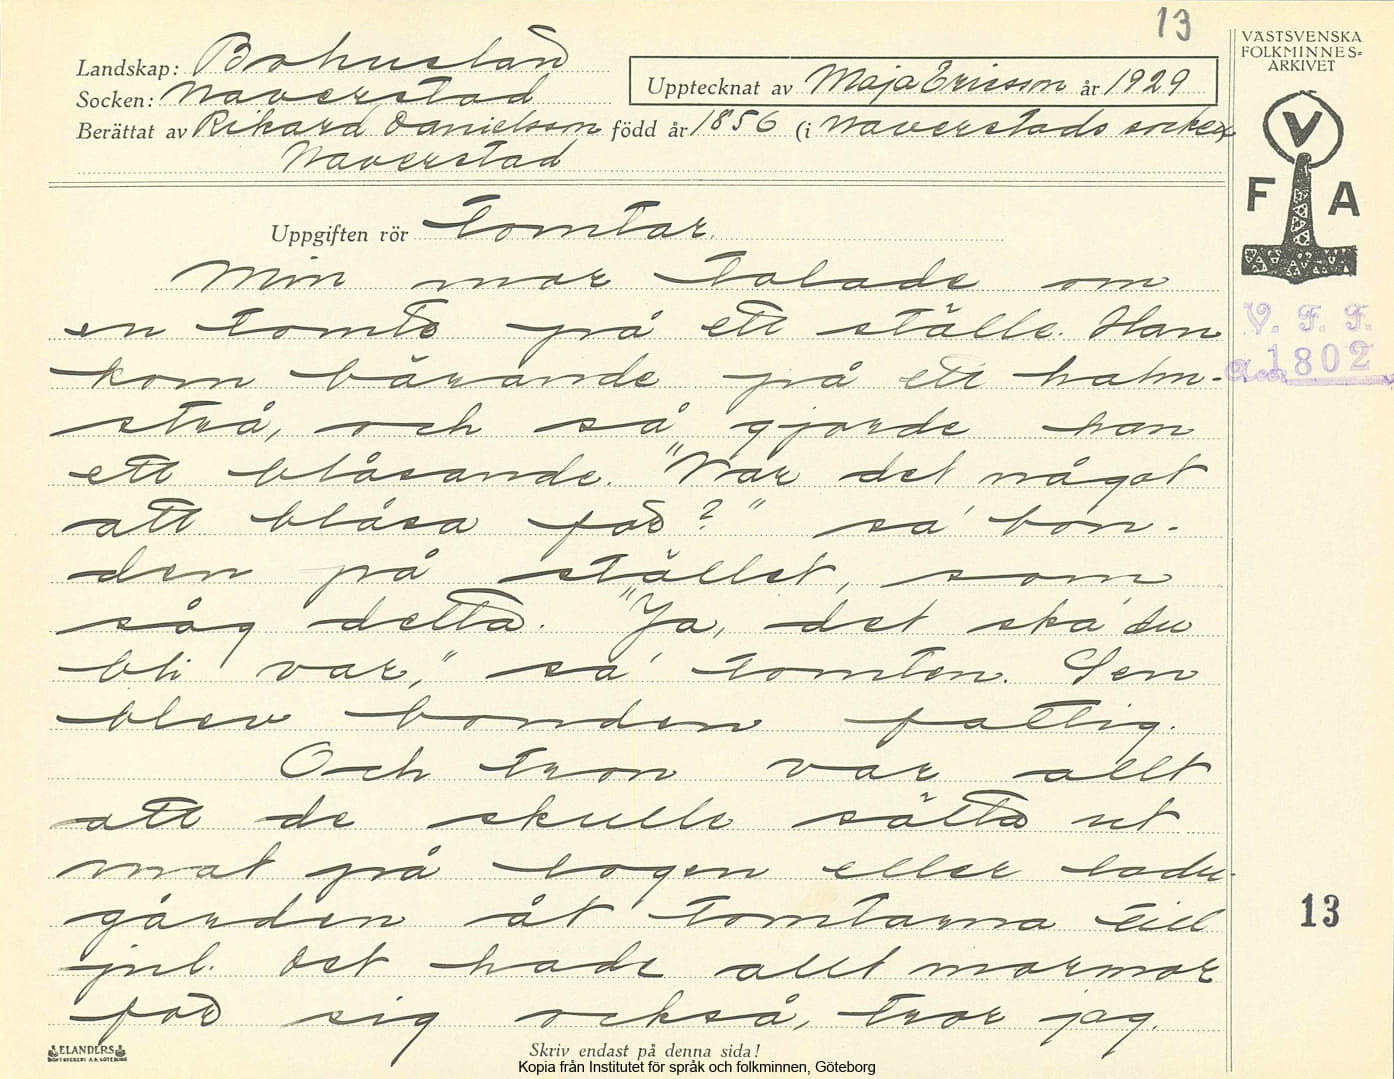 13
VÄSTSVENSKA
FOLKMINNES=
ARKIVET
Landskap: Bohuslän
Socken: Naverstad
Upptecknat av Maja Ericsson år 1929
Berättat av Rikard Danielsson född år 1856 (i Naverstads socken)
Naverstad
V
F A
Uppgiften rör Tomtar.
Min mor talade om
en tomte på ett ställe. Han
kom bärande på ett halm-
strå, och så gjorde han
ett blåsande. "Var det något
att blåsa för?" sa' bon-
den på stället, som
såg detta. "Ja, det ska' du
bli var," sa' tomten. Sen
blev bonden fattig.
Och tron var allt
att de skulle sätta ut
mat på logen eller ladu-
gården åt tomtarna till
jul. Det hade allt mormor
för sig också, tror jag.
V. F. F.
Acc. 1802
13
ELANDERS
BOKTRYCKERI A.B. GÖTEBORG
Skriv endast på denna sida!
Kopia från Institutet för språk och folkminnen, Göteborg